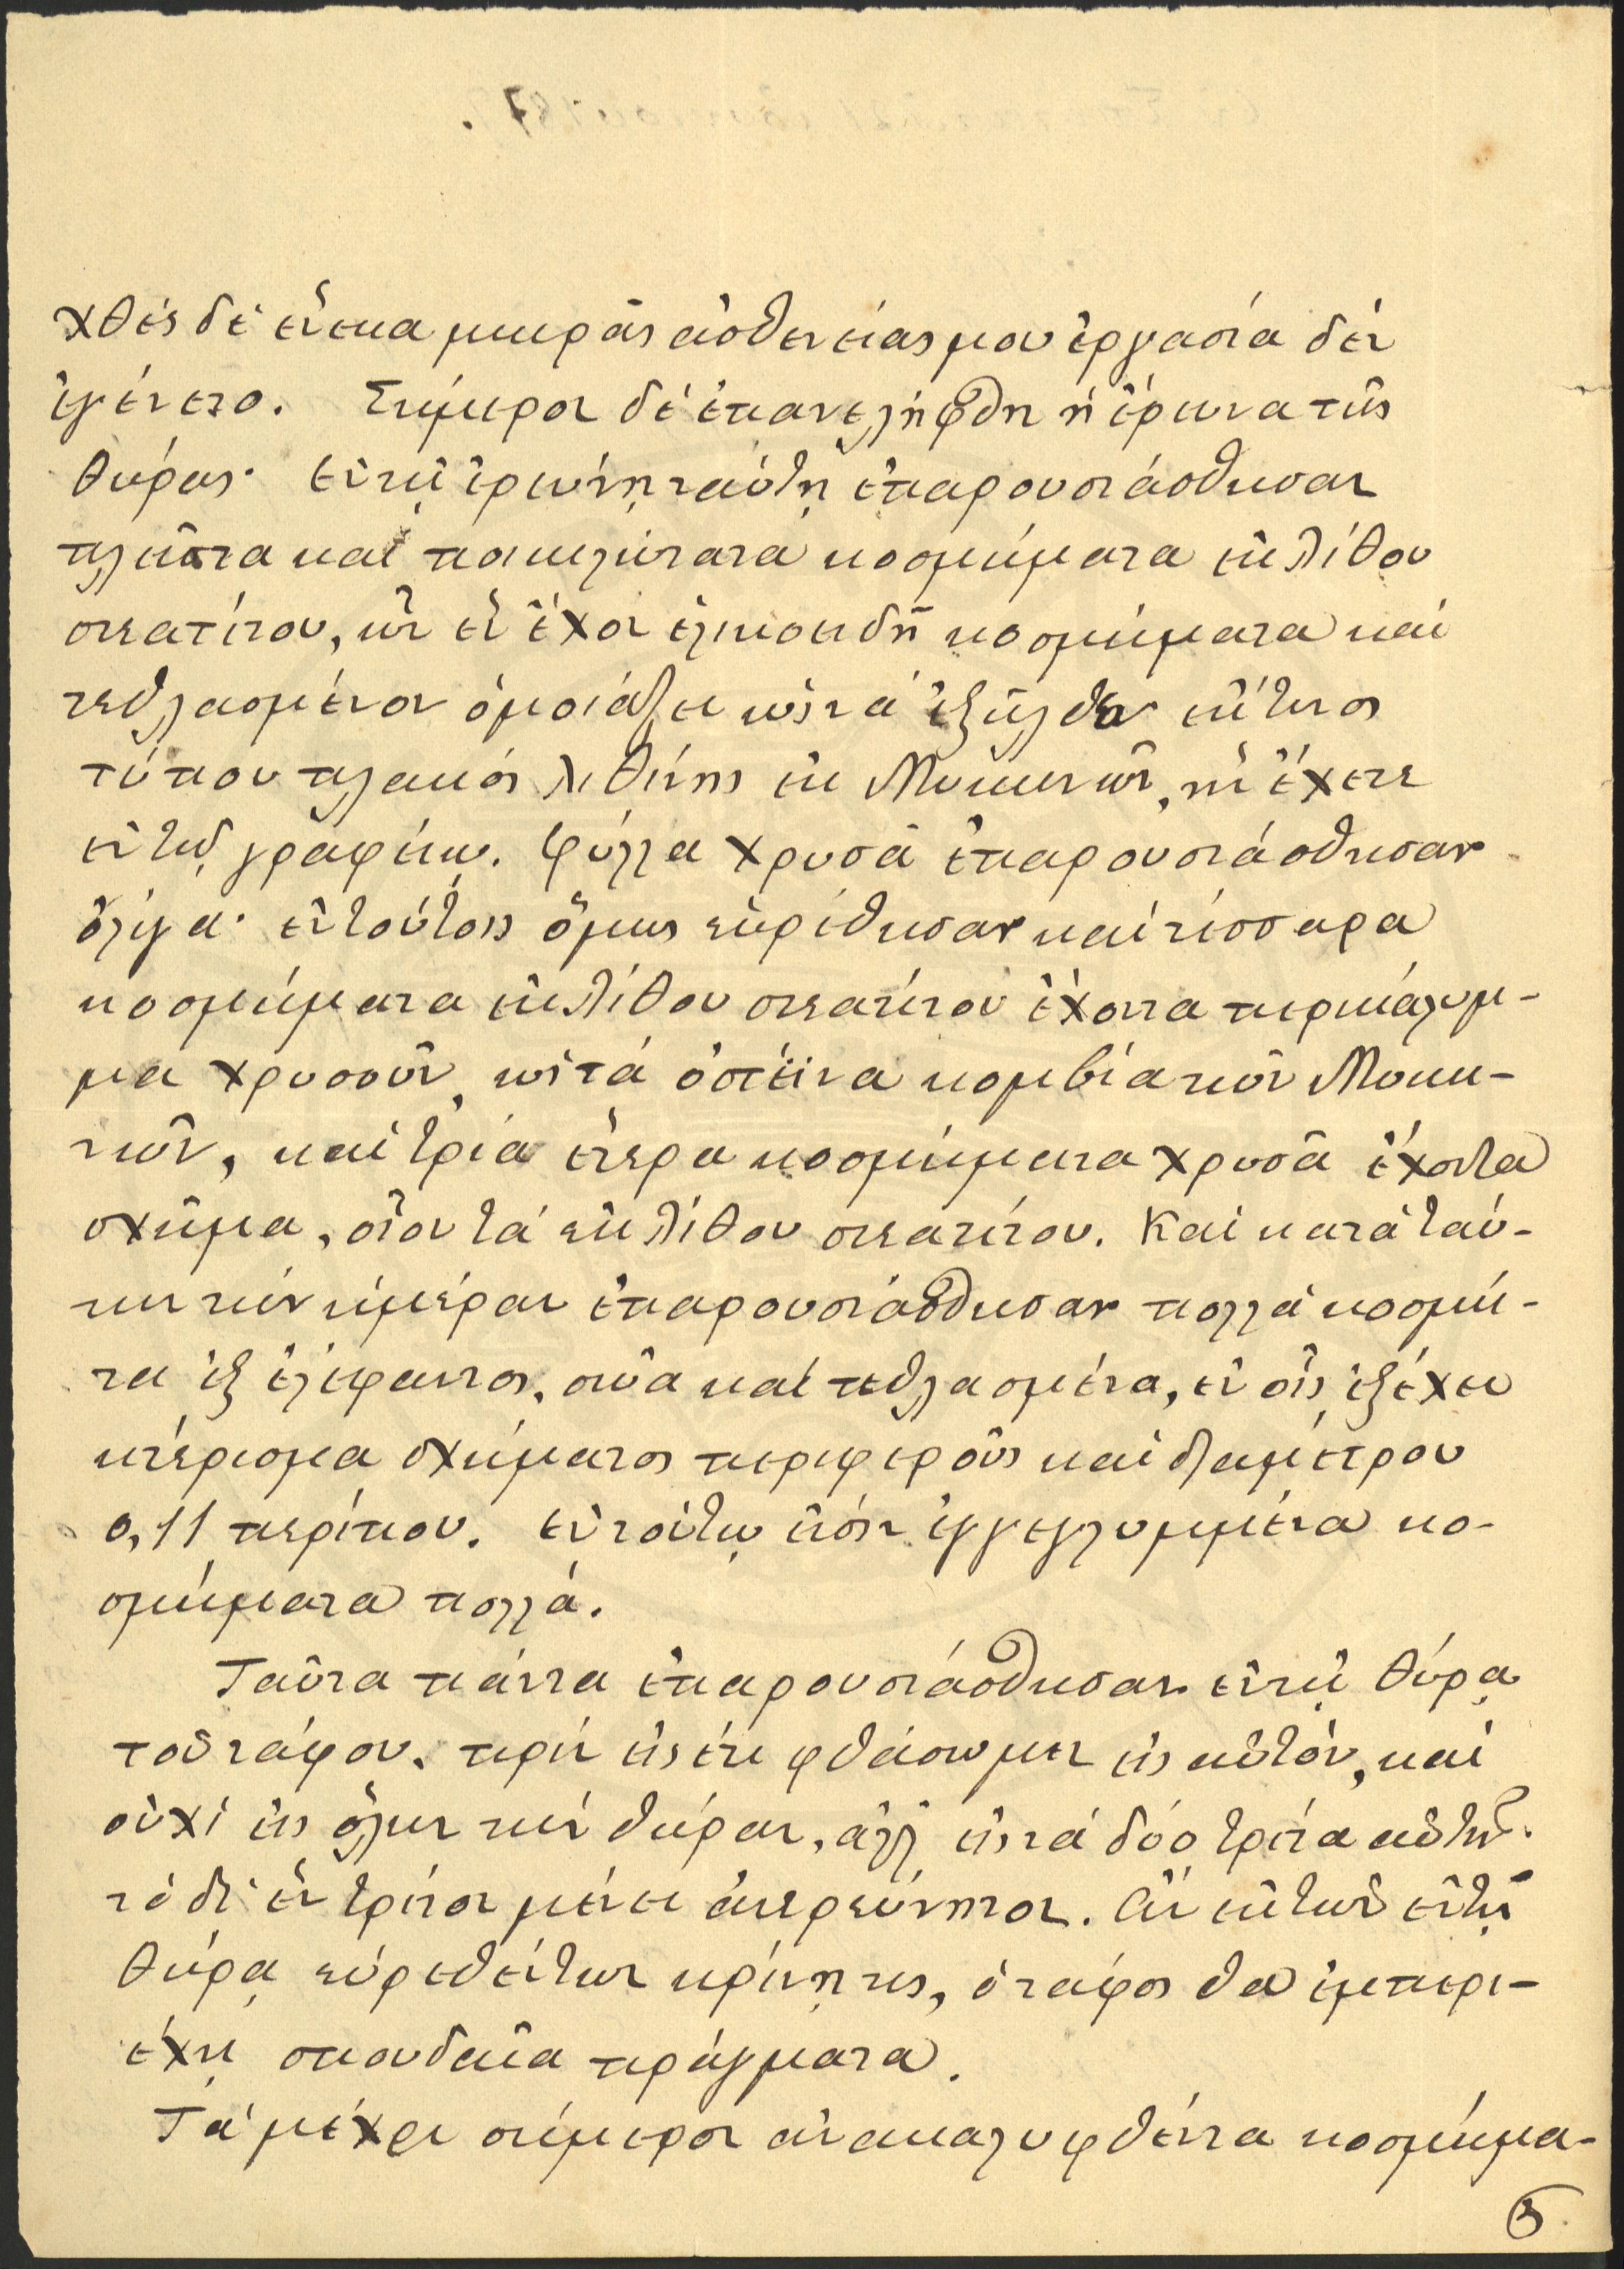 χθὲς δὲ ἕνεκα μικρᾶς ἀσθενείας μου ἐργασία δὲν
ἐγένετο. Σήμερον δὲ ἐπανελήφθη ἡ ἔρευνα τῆς
θύρας· ἐν τῇ ἐρεύνῃ ταύτῃ ἐπαρουσιάσθησαν
πλεῖστα καὶ ποικιλώτατα κοσμήματα ἐκ λίθου
στεατίτου, ὧν ἓν ἔχον ἑλικοειδῆ κοσμήματα καὶ
τεθλασμένον ὁμοιάζει ὡς νὰ ἐξῆλθεν ἔκ τινος
τύπου πλακὸς λιθίνης ἐκ Μυκηνῶν, ἣν ἔχετε
ἐν τῷ γραφείῳ. Φύλλα χρυσᾶ ἐπαρουσιάσθησαν
ὀλίγα· ἐν τούτοις ὅμως εὑρέθησαν καὶ τέσσαρα
κοσμήματα ἐκ λίθου στεατίτου ἔχοντα περικάλυμ-
μα χρυσοῦν, ὡς τὰ ὀστέϊνα κομβία τῶν Μυκη-
νῶν, καὶ τρία ἕτερα κοσμήματα χρυσᾶ ἔχοντα
σχῆμα, οἷον τὰ ἐκ λίθου στεατίτου. Καὶ κατὰ ταύ-
την τὴν ἡμέραν ἐπαρουσιάσθησαν πολλὰ κοσμή-
τα ἐξ ἐλέφαντος, σῶα καὶ τεθλασμένα, ἐν οἷς ἐξέχει
κτέρισμα σχήματος περιφεροῦς καὶ διαμέτρου
0,11 περίπου. ἐν τούτῳ εἰσὶν ἐγγεγλυμμένα κο-
σμήματα πολλά.
Ταῦτα πάντα ἐπαρουσιάσθησαν ἐν τῇ θύρᾳ
τοῦ τάφου, πρὶν εἰσέτι φθάσωμεν εἰς αὐτόν, καὶ
οὐχὶ εἰς ὅλην τὴν θύραν, ἀλλ' εἰς τὰ δύο τρίτα αὐτῆς·
τὸ δὲ ἓν τρίτον μένει ἀνερεύνητον. Ἂν ἐκ τῶν ἐν τῇ
θύρᾳ εὑρεθέντων κρίνῃ τις, ὁ τάφος θὰ ἐμπερι-
έχῃ σπουδαῖα πράγματα.
Τὰ μέχρι σήμερον ἀνακαλυφθέντα κοσμήμα-
3